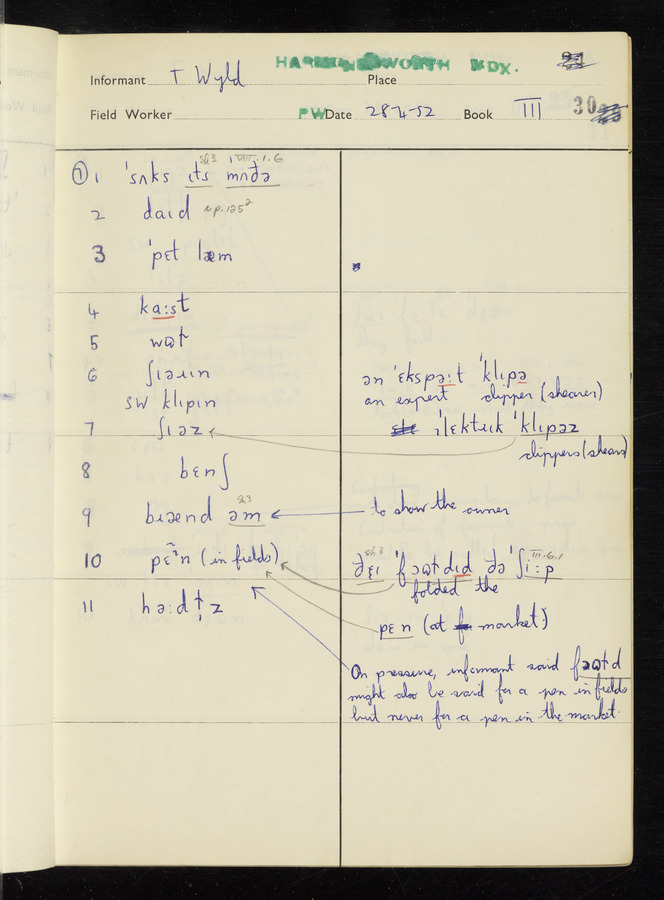 HARMONDSWORTH MDX.
Informant T Wyld Place
Field Worker PW Date 28-4-52 Book III 30
⑦ 1 ˈsʌks ɪts mʌðə
sh3 VIII.1.6
2 daɪd
3 ˈpɛt læm
4 ka:st
5 wɒt
6 ʃɪəɹɪn
SW klɪpɪn
7 ʃɪəz
8 bɛnʃ
9 bɹænd əm
sh3
10 pɛn (in fields)
11 hə:dɫ̩z
ən ˈɛkspə:t ˈklɪpə
an expert clipper (shearer)
ɪˈlɛktɹɪk ˈklɪpəz
clippers (shears)
to show the owner
sh3 III.6.1
ðɛɪ ˈfəɒɫdɪd ðə ˈʃi:p
folded the
pɛn (at market)
On pressure, informant said fəɒɫd
might also be said for a pen in fields
but never for a pen in the market.